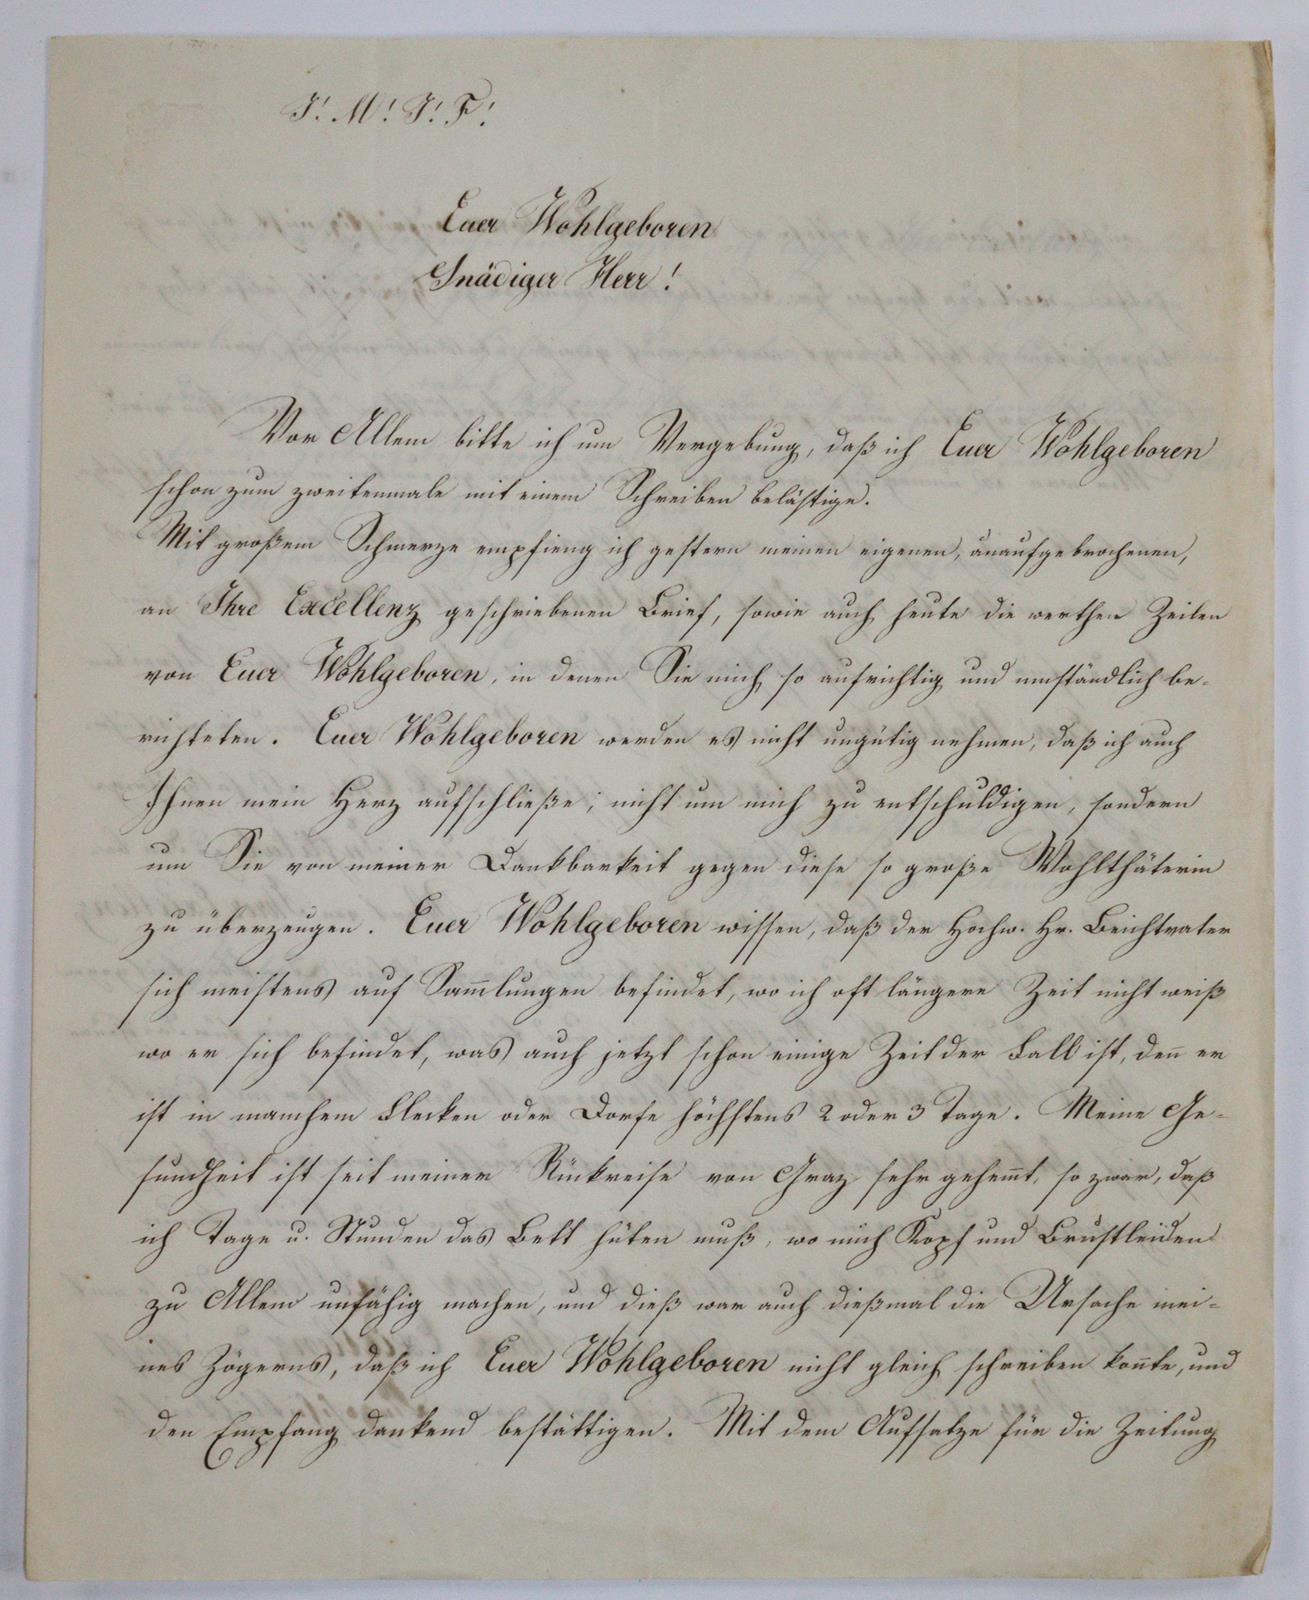 J! M! J! F!
Euer Wohlgeboren
Gnädiger Herr!
Vor Allem bitte ich um Vergebung, daß ich Euer Wohlgeboren
schon zum zweitenmale mit einem Schreiben belästige.
Mit großem Schmerze empfieng ich gestern meinen eigenen, unaufgebrochenen,
an Ihre Excellenz geschriebenen Brief, sowie auch heute die werthen Zeilen
von Euer Wohlgeboren, in denen Sie mich so aufrichtig und umständlich be-
richteten. Euer Wohlgeboren werden es nicht ungütig nehmen, daß ich auch
Ihnen mein Herz aufschließe; nicht um mich zu entschuldigen, sondern
um Sie von meiner Dankbarkeit gegen diese so große Wohlthäterin
zu überzeugen. Euer Wohlgeboren wissen, daß der Hochw. Hr. Beichtvater
sich meistens auf Sam̄lungen befindet, wo ich oft längere Zeit nicht weiß
wo er sich befindet, was auch jetzt schon einige Zeit der Fall ist, den̄ er
ist in manchem Flecken oder Dorfe höchstens 2 oder 3 Tage. Meine Ge-
sundheit ist seit meiner Rückreise von Graz sehr gehem̄t, so zwar, daß
ich Tage u. Stunden das Bett hüten muß, wo mich Kopf und Brustleiden
zu Allem unfähig machen, und dieß war auch dießmal die Ursache mei-
nes Zögerns, daß ich Euer Wohlgeboren nicht gleich schreiben kon̄te, und
den Empfang dankend bestättigen. Mit dem Aufsatze für die Zeitung